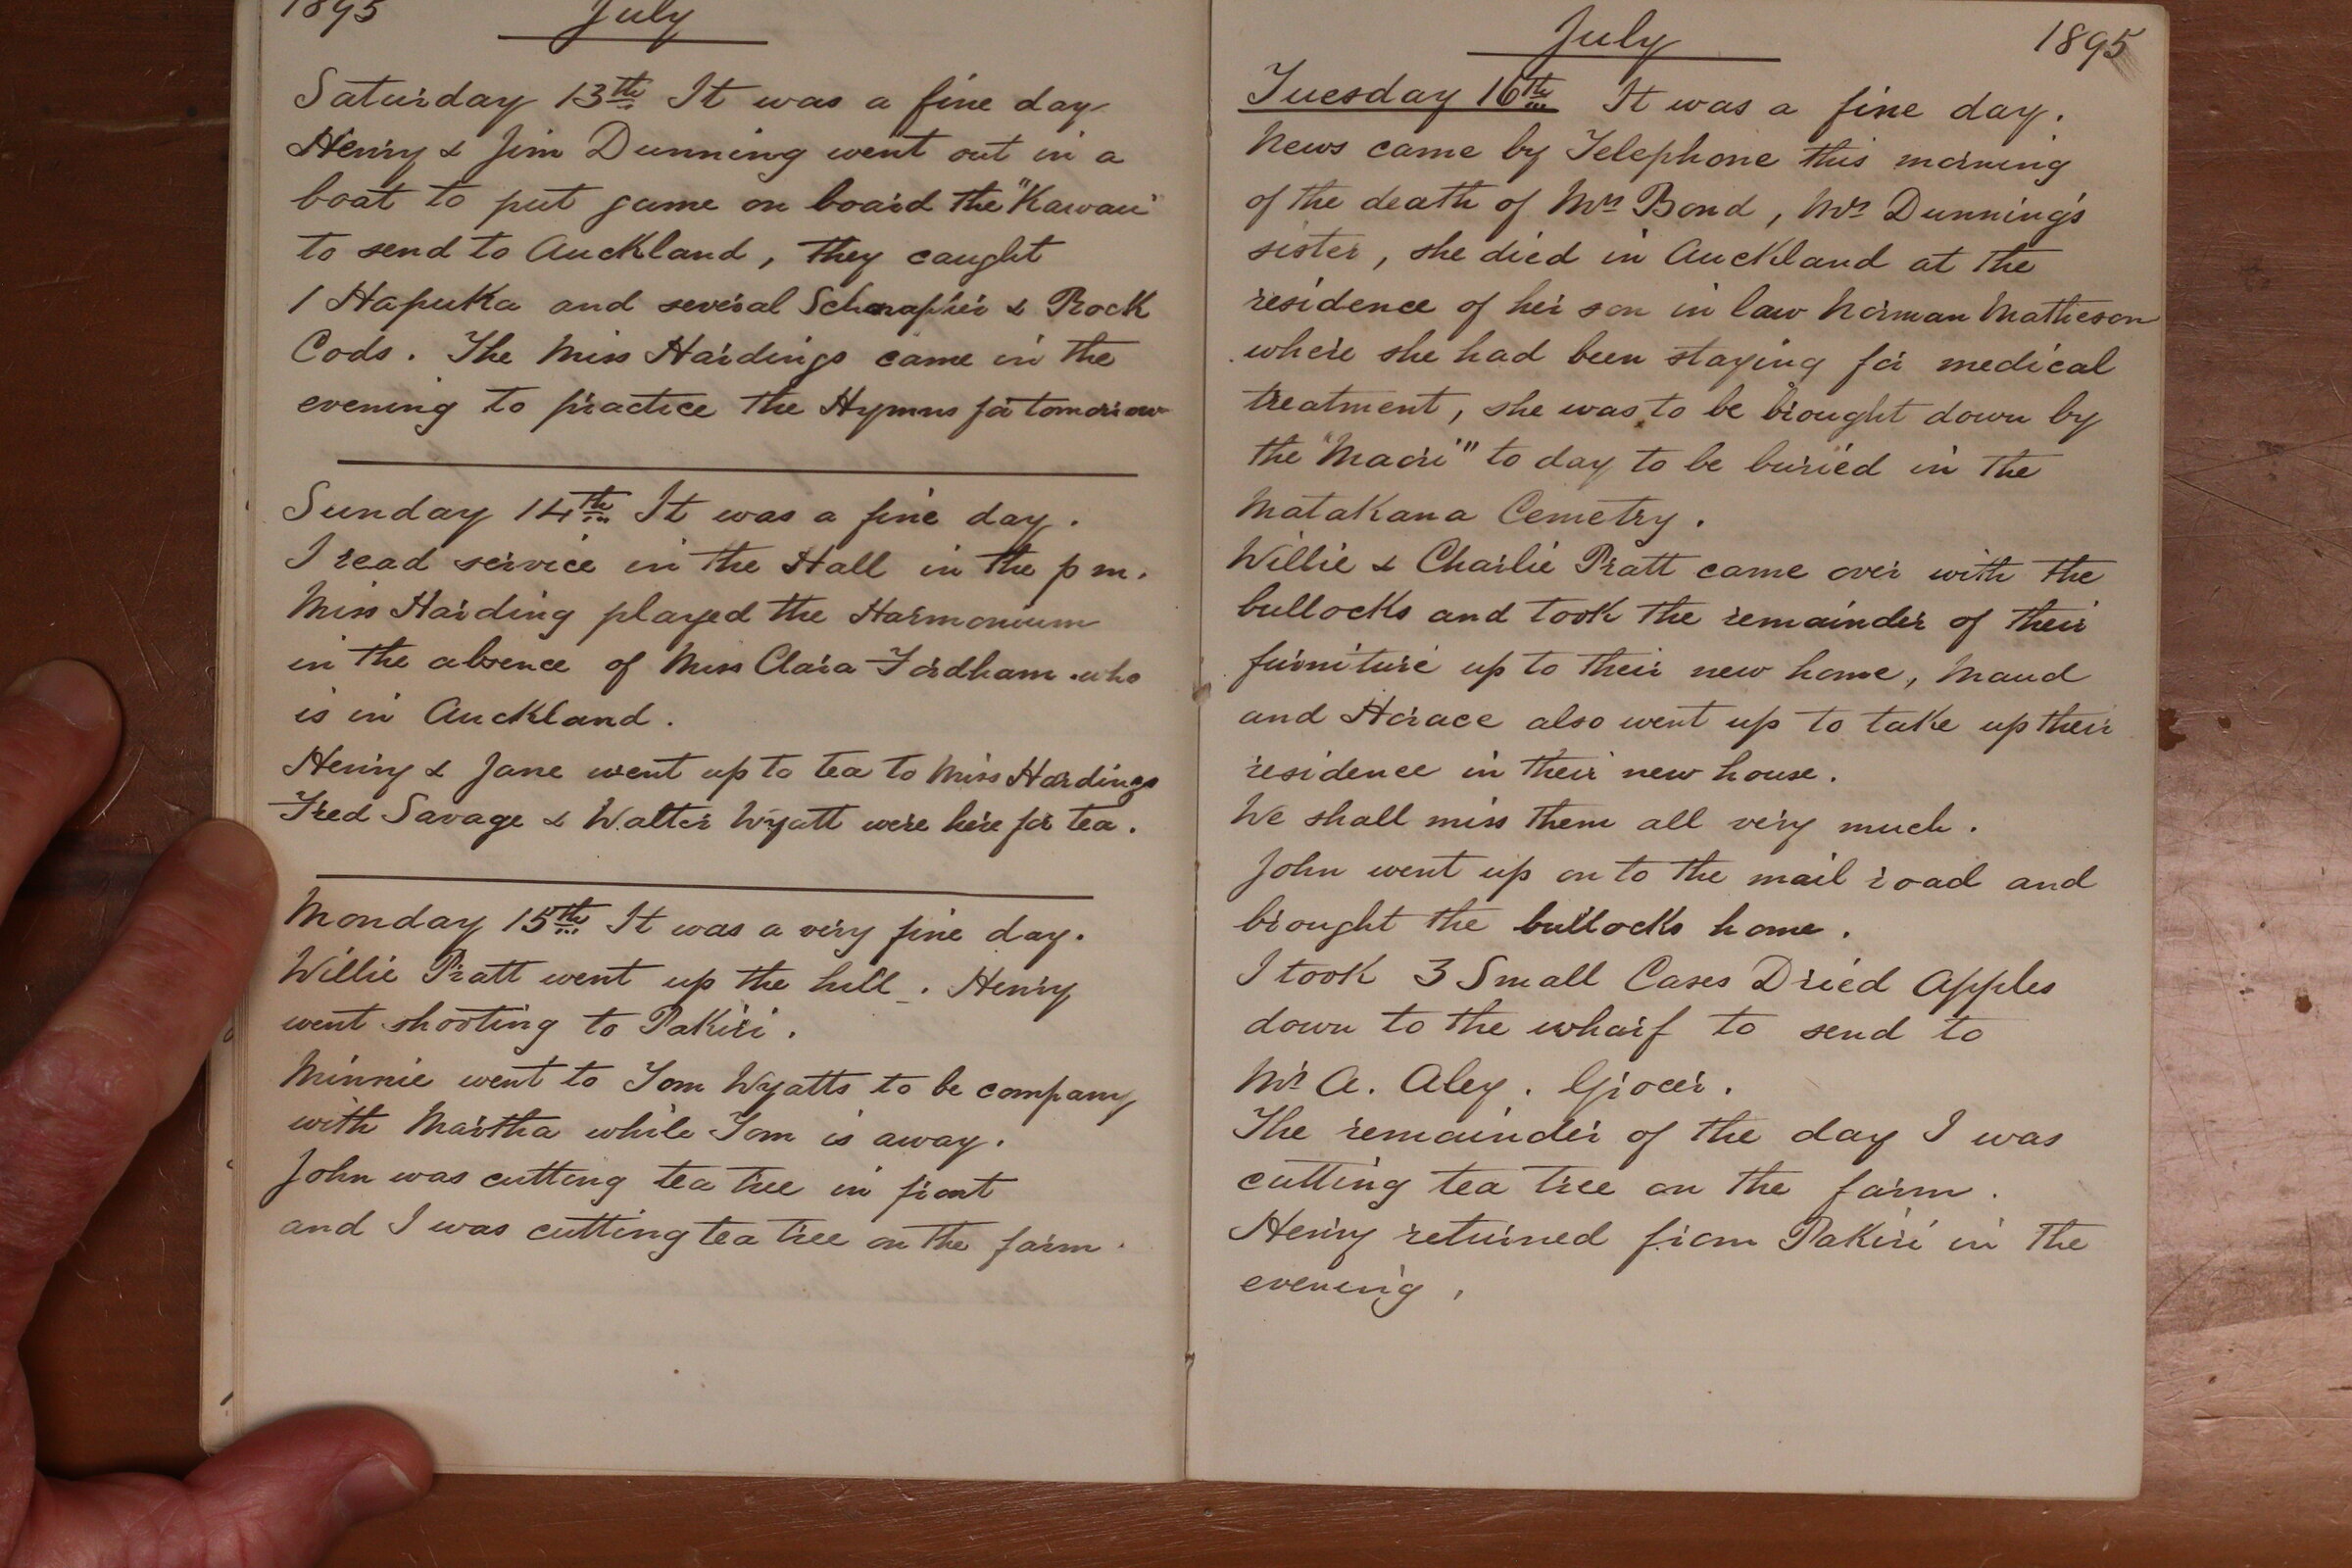 1895 July
Saturday 13th It was a fine day
Henry & Jim Dunning went out in a
boat to put game on board the "Kawau"
to send to Auckland, they caught
1 Hapuka and several Schnapper & Rock
Cods. The Miss Hardings came in the
evening to practice the Hymns for tomorrow
Sunday 14th It was a fine day.
I read service in the Hall in the p m.
Miss Harding played the Harmonium
in the absence of Miss Clara Fordham who
is in Auckland.
Henry & Jane went up to tea to Miss Hardings
Fred Savage & Walter Wyatt were here for tea.
Monday 15th It was a very fine day.
Willie Pratt went up the hill. Henry
went shooting to Pakiri.
Minnie went to Tom Wyatts to be company
with Martha while Tom is away.
John was cutting tea tree in front
and I was cutting tea tree on the farm.
July 1895
Tuesday 16th It was a fine day.
News came by Telephone this morning
of the death of Mrs Bond, Mrs Dunning's
sister, she died in Auckland at the
residence of her son in law Norman Matheson
where she had been staying for medical
treatment, she was to be brought down by
the "Maori" to day to be buried in the
Matakana Cemetry.
Willie & Charlie Pratt came over with the
bullocks and took the remainder of their
furniture up to their new home, Maud
and Horace also went up to take up their
residence in their new house.
We shall miss them all very much.
John went up on to the mail road and
brought the bullocks home.
I took 3 Small Cases Dried Apples
down to the wharf to send to
Mr A. Aley. Grocer.
The remainder of the day I was
cutting tea tree on the farm.
Henry returned from Pakiri in the
evening,